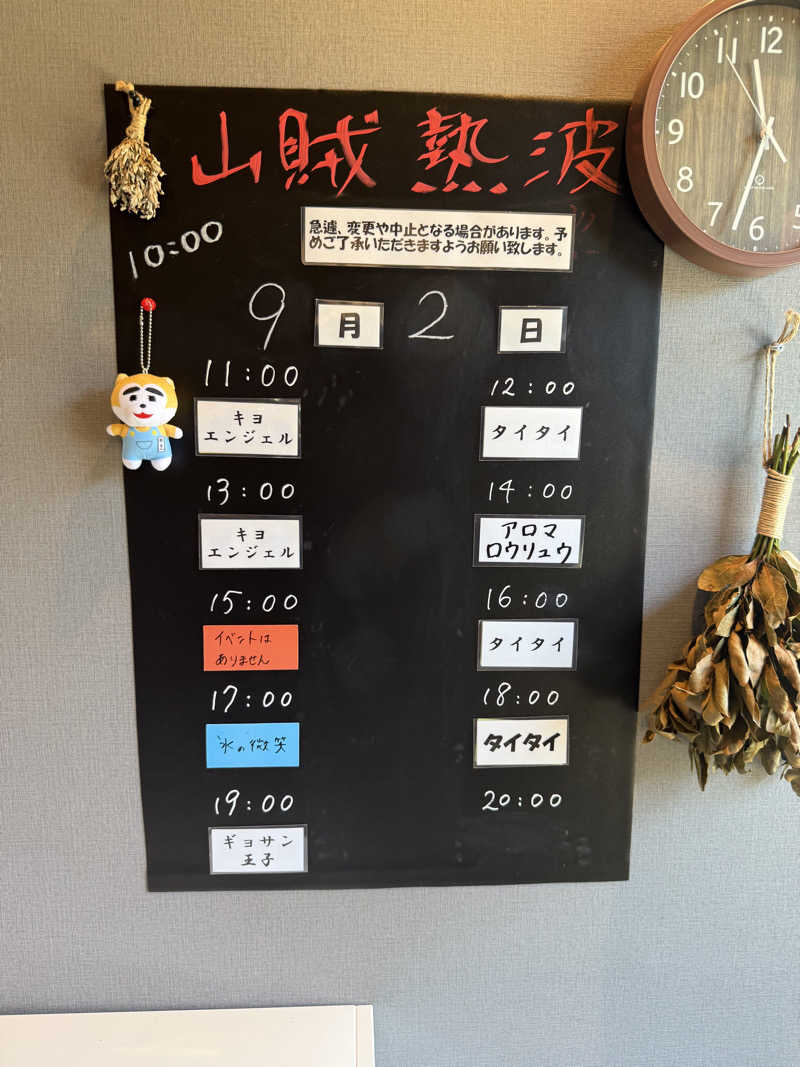 山賊 熱波
急遽、変更や中止となる場合があります。予
めご了承いただきますようお願い致します。
10:00
9 月 2 日
11:00
キヨ
エンジェル
12:00
タイタイ
13:00
キヨ
エンジェル
14:00
アロマ
ロウリュウ
15:00
イベントは
ありません
16:00
タイタイ
17:00
氷の微笑
18:00
タイタイ
19:00
ギョサン
王子
20:00
12
11
10
9
8
7
6
5